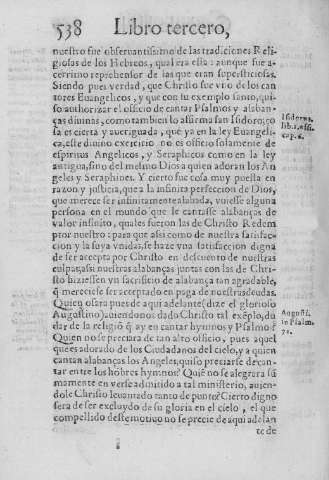 538 Libro tercero,
nuestro fue obseruantissimo de las tradiciones Reli-
giosas de los Hebreos, qual era esta: aunque fue a-
cerrimo reprehensor de las que eran supersticiosas.
Siendo pues verdad, que Christo fue vno de los can
tores Euangelicos, y que con su exemplo santo, qui-
so authorizar el oficio de cantar Psalmos y alaban-
ças diuinas, como tambien lo afirma san Isidoro; co
sa es cierta y aueriguada, que ya en la ley Euangeli-
ca, este diuino exercicio no es oficio solamente de
espiritus Angelicos, y Seraphicos como en la ley
antigua, sino del mesmo Dios a quien adoran los An
geles y Seraphines. Y cierto fue cosa muy puesta en
razon y justicia, que a la infinita perfeccion de Dios,
que merece ser infinitamente alabada, vuiesse alguna
persona en el mundo que le cantasse alabanças de
valor infinito, quales fueron las de Christo Redem
ptor nuestro: para que assi como de nuestra satisfac-
cion y la suya vnidas, se haze vna satisfaccion digna
de ser accepta por Christo en descuento de nuestras
culpas; assi nuestras alabanças juntas con las de Chri-
sto hiziessen vn sacrificio de alabança tan agradable,
q̃ mereciesse ser acceptado en paga de nuestras deudas.
Quien osara pues de aqui adelante (dize el glorioso
Augustino) auiendonos dado Christo tal exẽplo, du
dar de la religiõ q̃ ay en cantar hymnos y Psalmos?
Quien no se preciara de tan alto oficio, pues aquel
que es adorado de los Ciudadanos del cielo, y a quien
cantan alabanças los Angeles, quiso preciarse de can-
tar entre los hõbres hymnos? Quiẽ no se alegrara sũ
mamente en verse admitido a tal ministerio, auien-
dole Christo leuantado tanto de punto? Cierto digno
sera de ser excluydo de su gloria en el cielo, el que
compellido deste motiuo no se precie de aqui adelan
te de
Isidorus,
lib. 1. offi.
cap. 5.
August.
in Psalm.